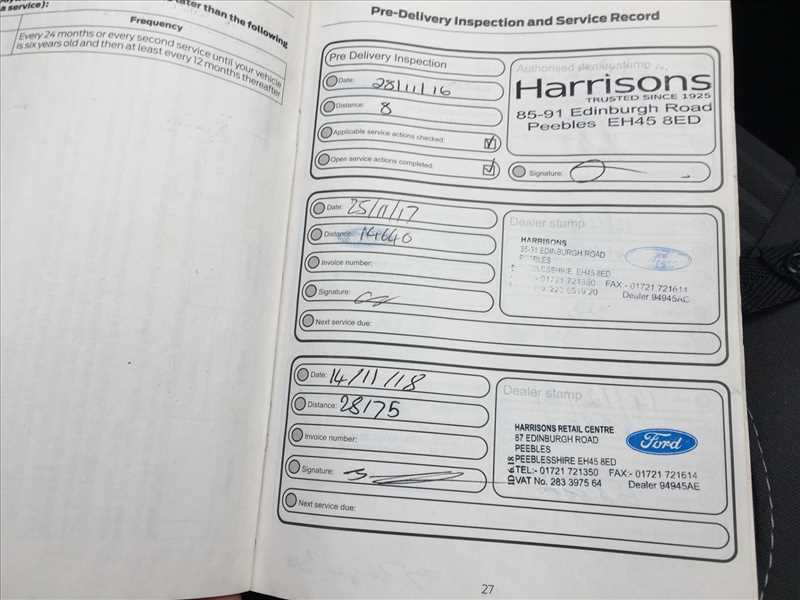 later than the following
a service):
Frequency
Every 24 months or every second service until your vehicle
is six years old and then at least every 12 months thereafter
Pre-Delivery Inspection and Service Record
Pre Delivery Inspection
Date: 28/11/16
Distance: 8
Applicable service actions checked:
Open service actions completed:
Authorised dealer stamp
Harrisons
TRUSTED SINCE 1925
85-91 Edinburgh Road
Peebles EH45 8ED
Signature:
Date: 25/11/17
Distance: 14640
Invoice number:
Signature:
Next service due:
Dealer stamp
HARRISONS
EDINBURGH ROAD
PEEBLES
EH45 8ED
01721 721350 FAX:- 01721 721614
Dealer 94945AE
Ford
Date: 14/11/18
Distance: 28175
Invoice number:
Signature:
Next service due:
Dealer stamp
HARRISONS RETAIL CENTRE
87 EDINBURGH ROAD
PEEBLES
PEEBLESSHIRE EH45 8ED
TEL:- 01721 721350 FAX:- 01721 721614
VAT No. 283 3975 64 Dealer 94945AE
Ford
27